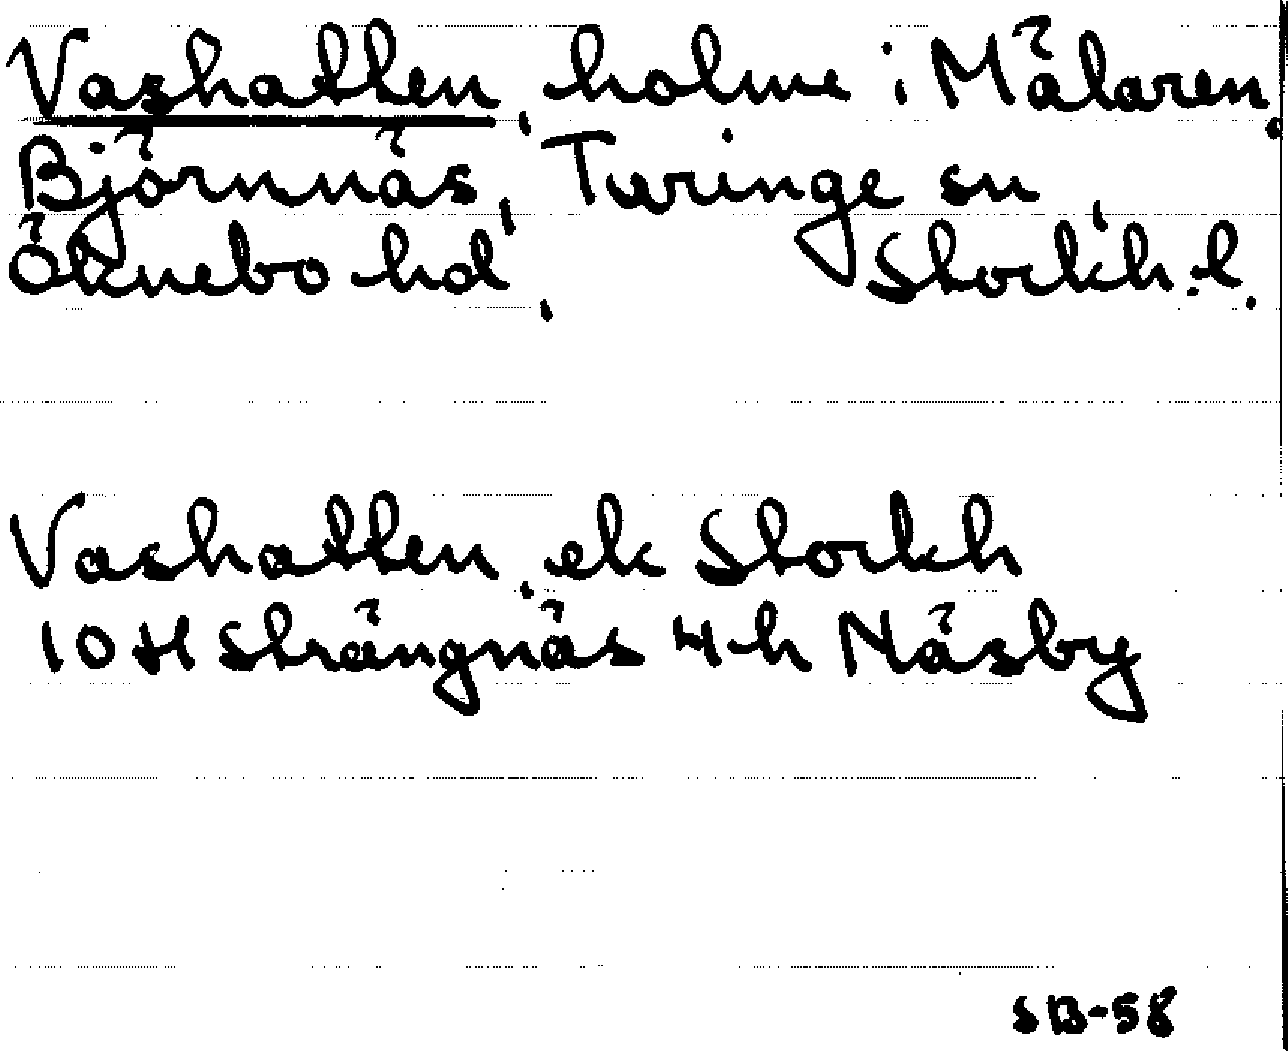 Vashatten, holme i Mälaren,
Björnnäs, Turinge sn,
Öknebo hd, Stockh. l.
Vashatten, ek Stockh
10 H Strängnäs 4 h Näsby
SB-58